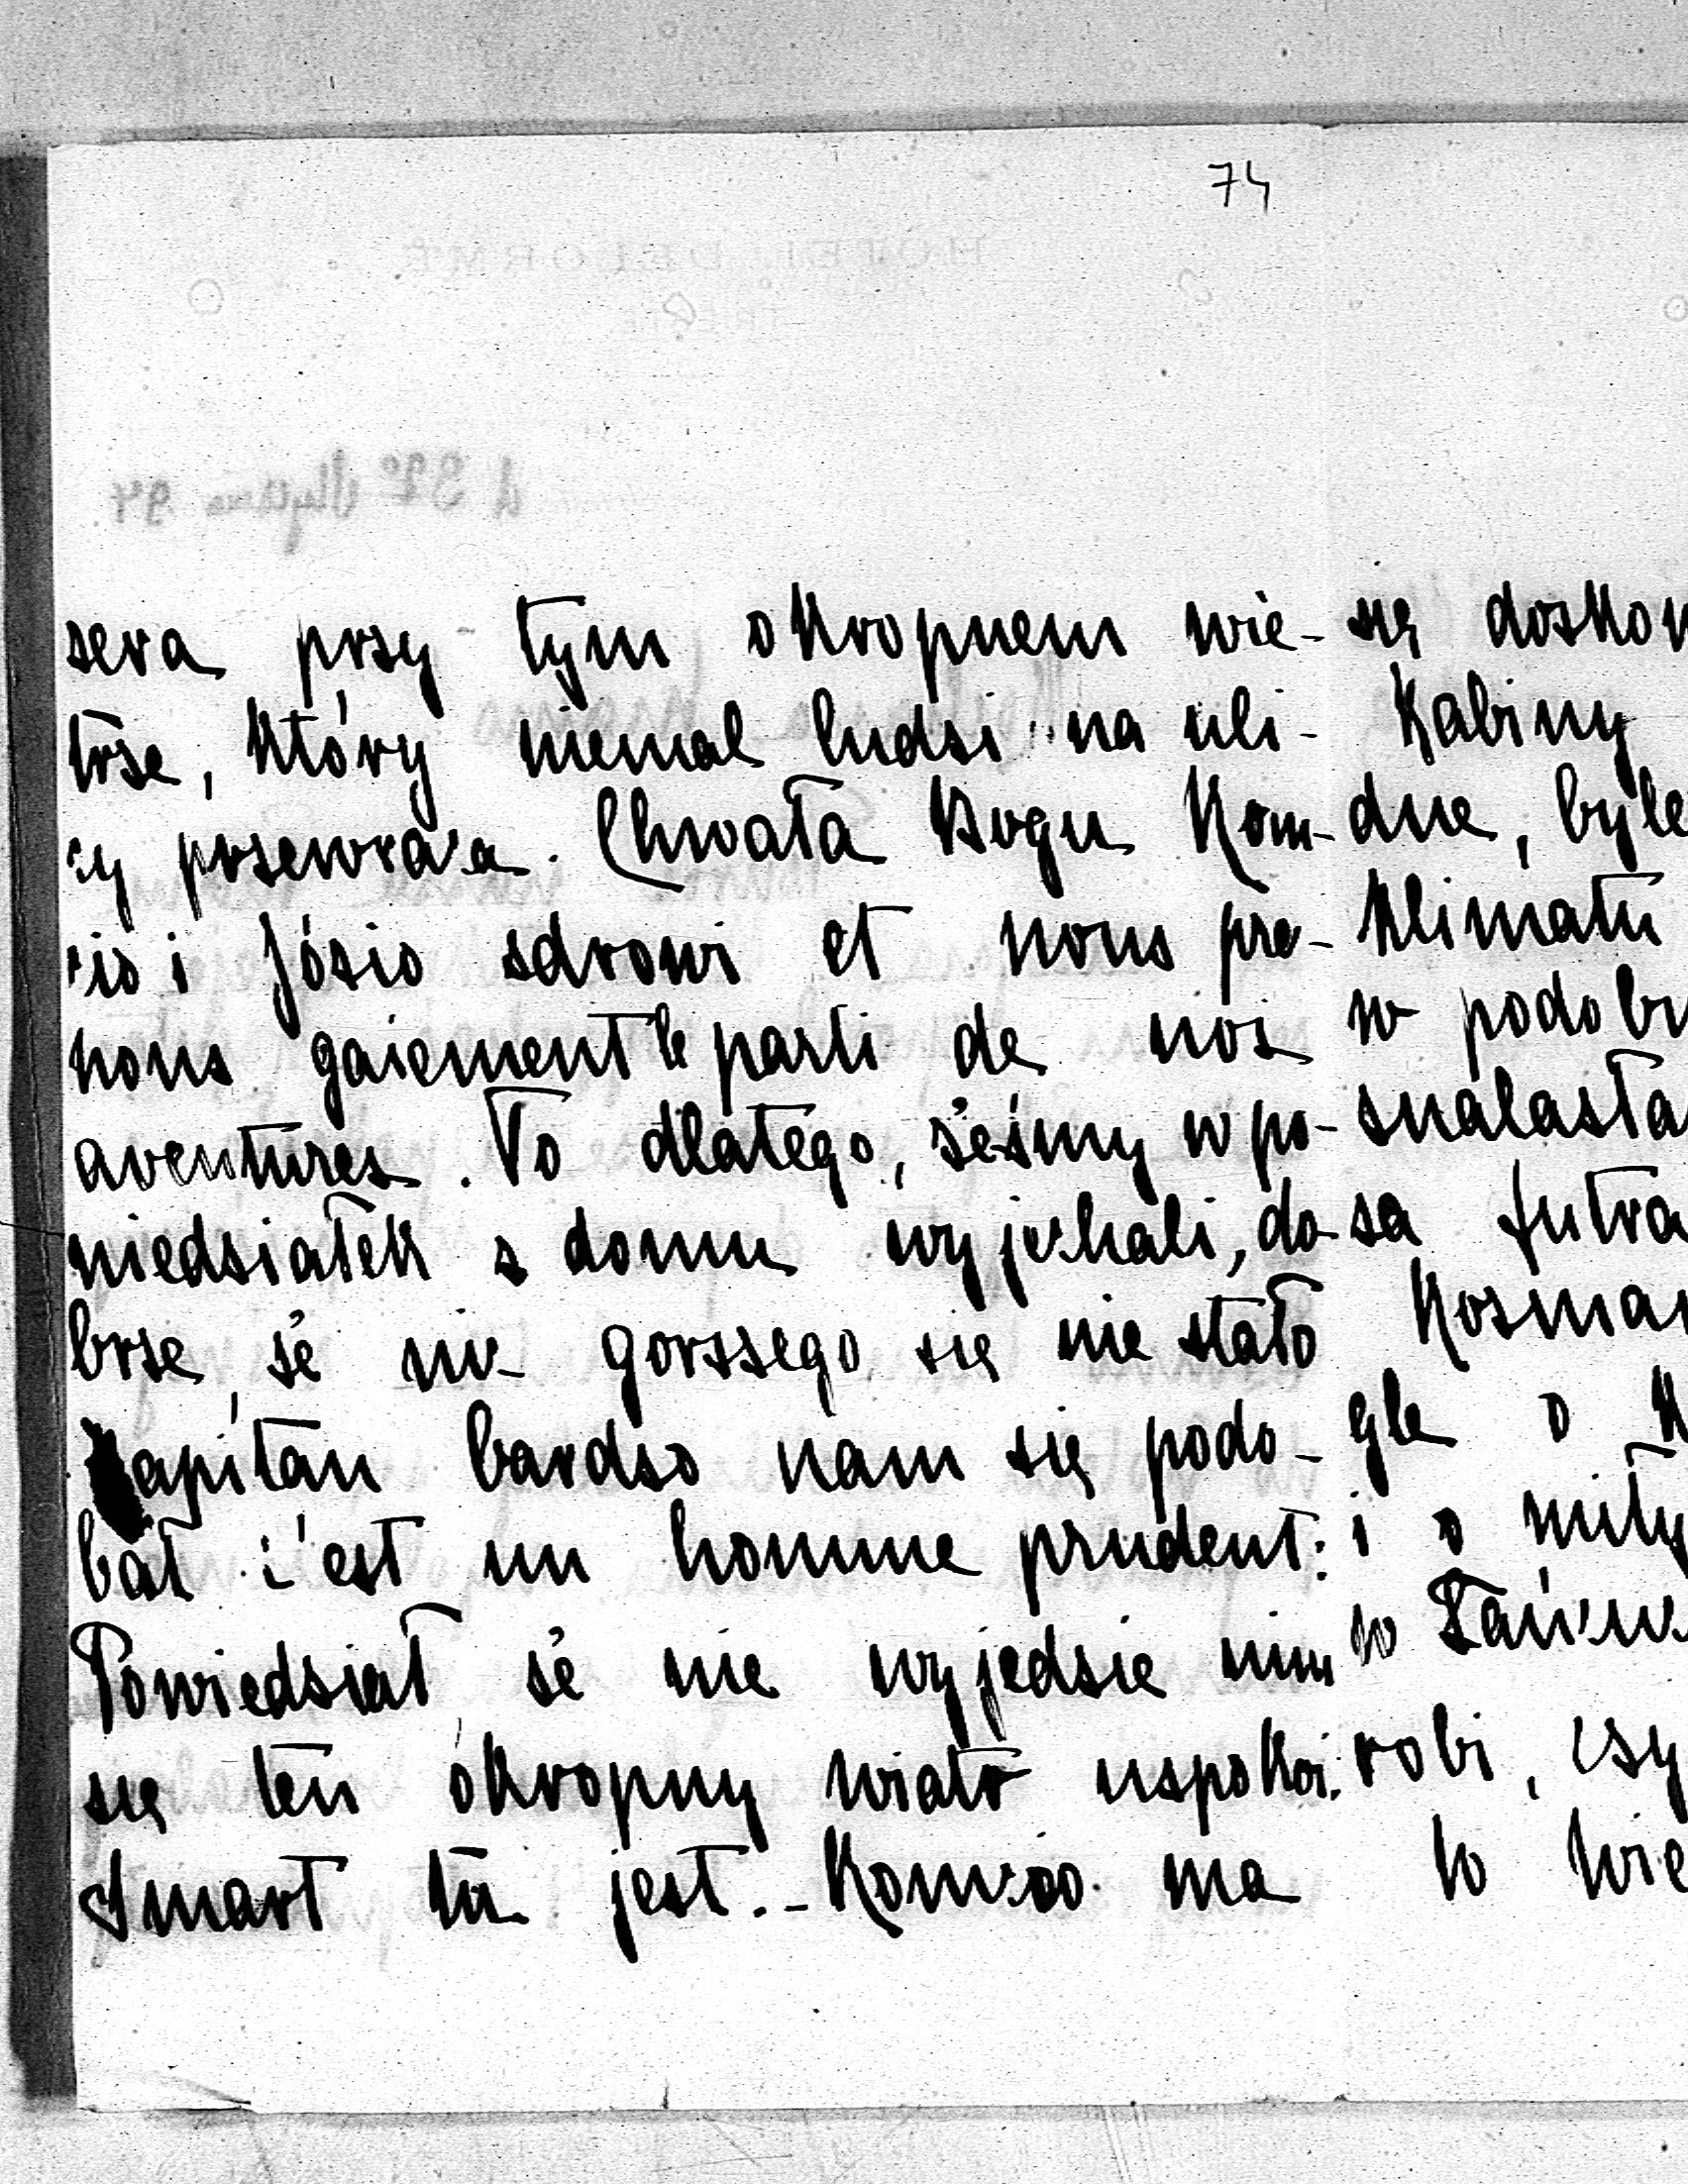 74
sera przy tym okropnem wie-
trze, który niemal ludzi na uli-
cy przewraca. Chwała Bogu Kom-
cio i Józio zdrowi et nous pre-
nons gaiement le parti de nos
aventures. To dlatego, żeśmy w po-
niedziałek z domu wyjechali, do-
brze, że nic gorszego się nie stało
Kapitan bardzo nam się podo-
bał c'est un homme prudent:
Powiedział że nie wyjedzie nim
się ten okropny wiatr uspokoi.
Smart tu jest. - Komcio ma
się doskon
Kabiny
dne, byle
Klimatu
w podobn
znalazła
za futra
Kosmar
gle o K
i o miły
w
robi, czy
to wie